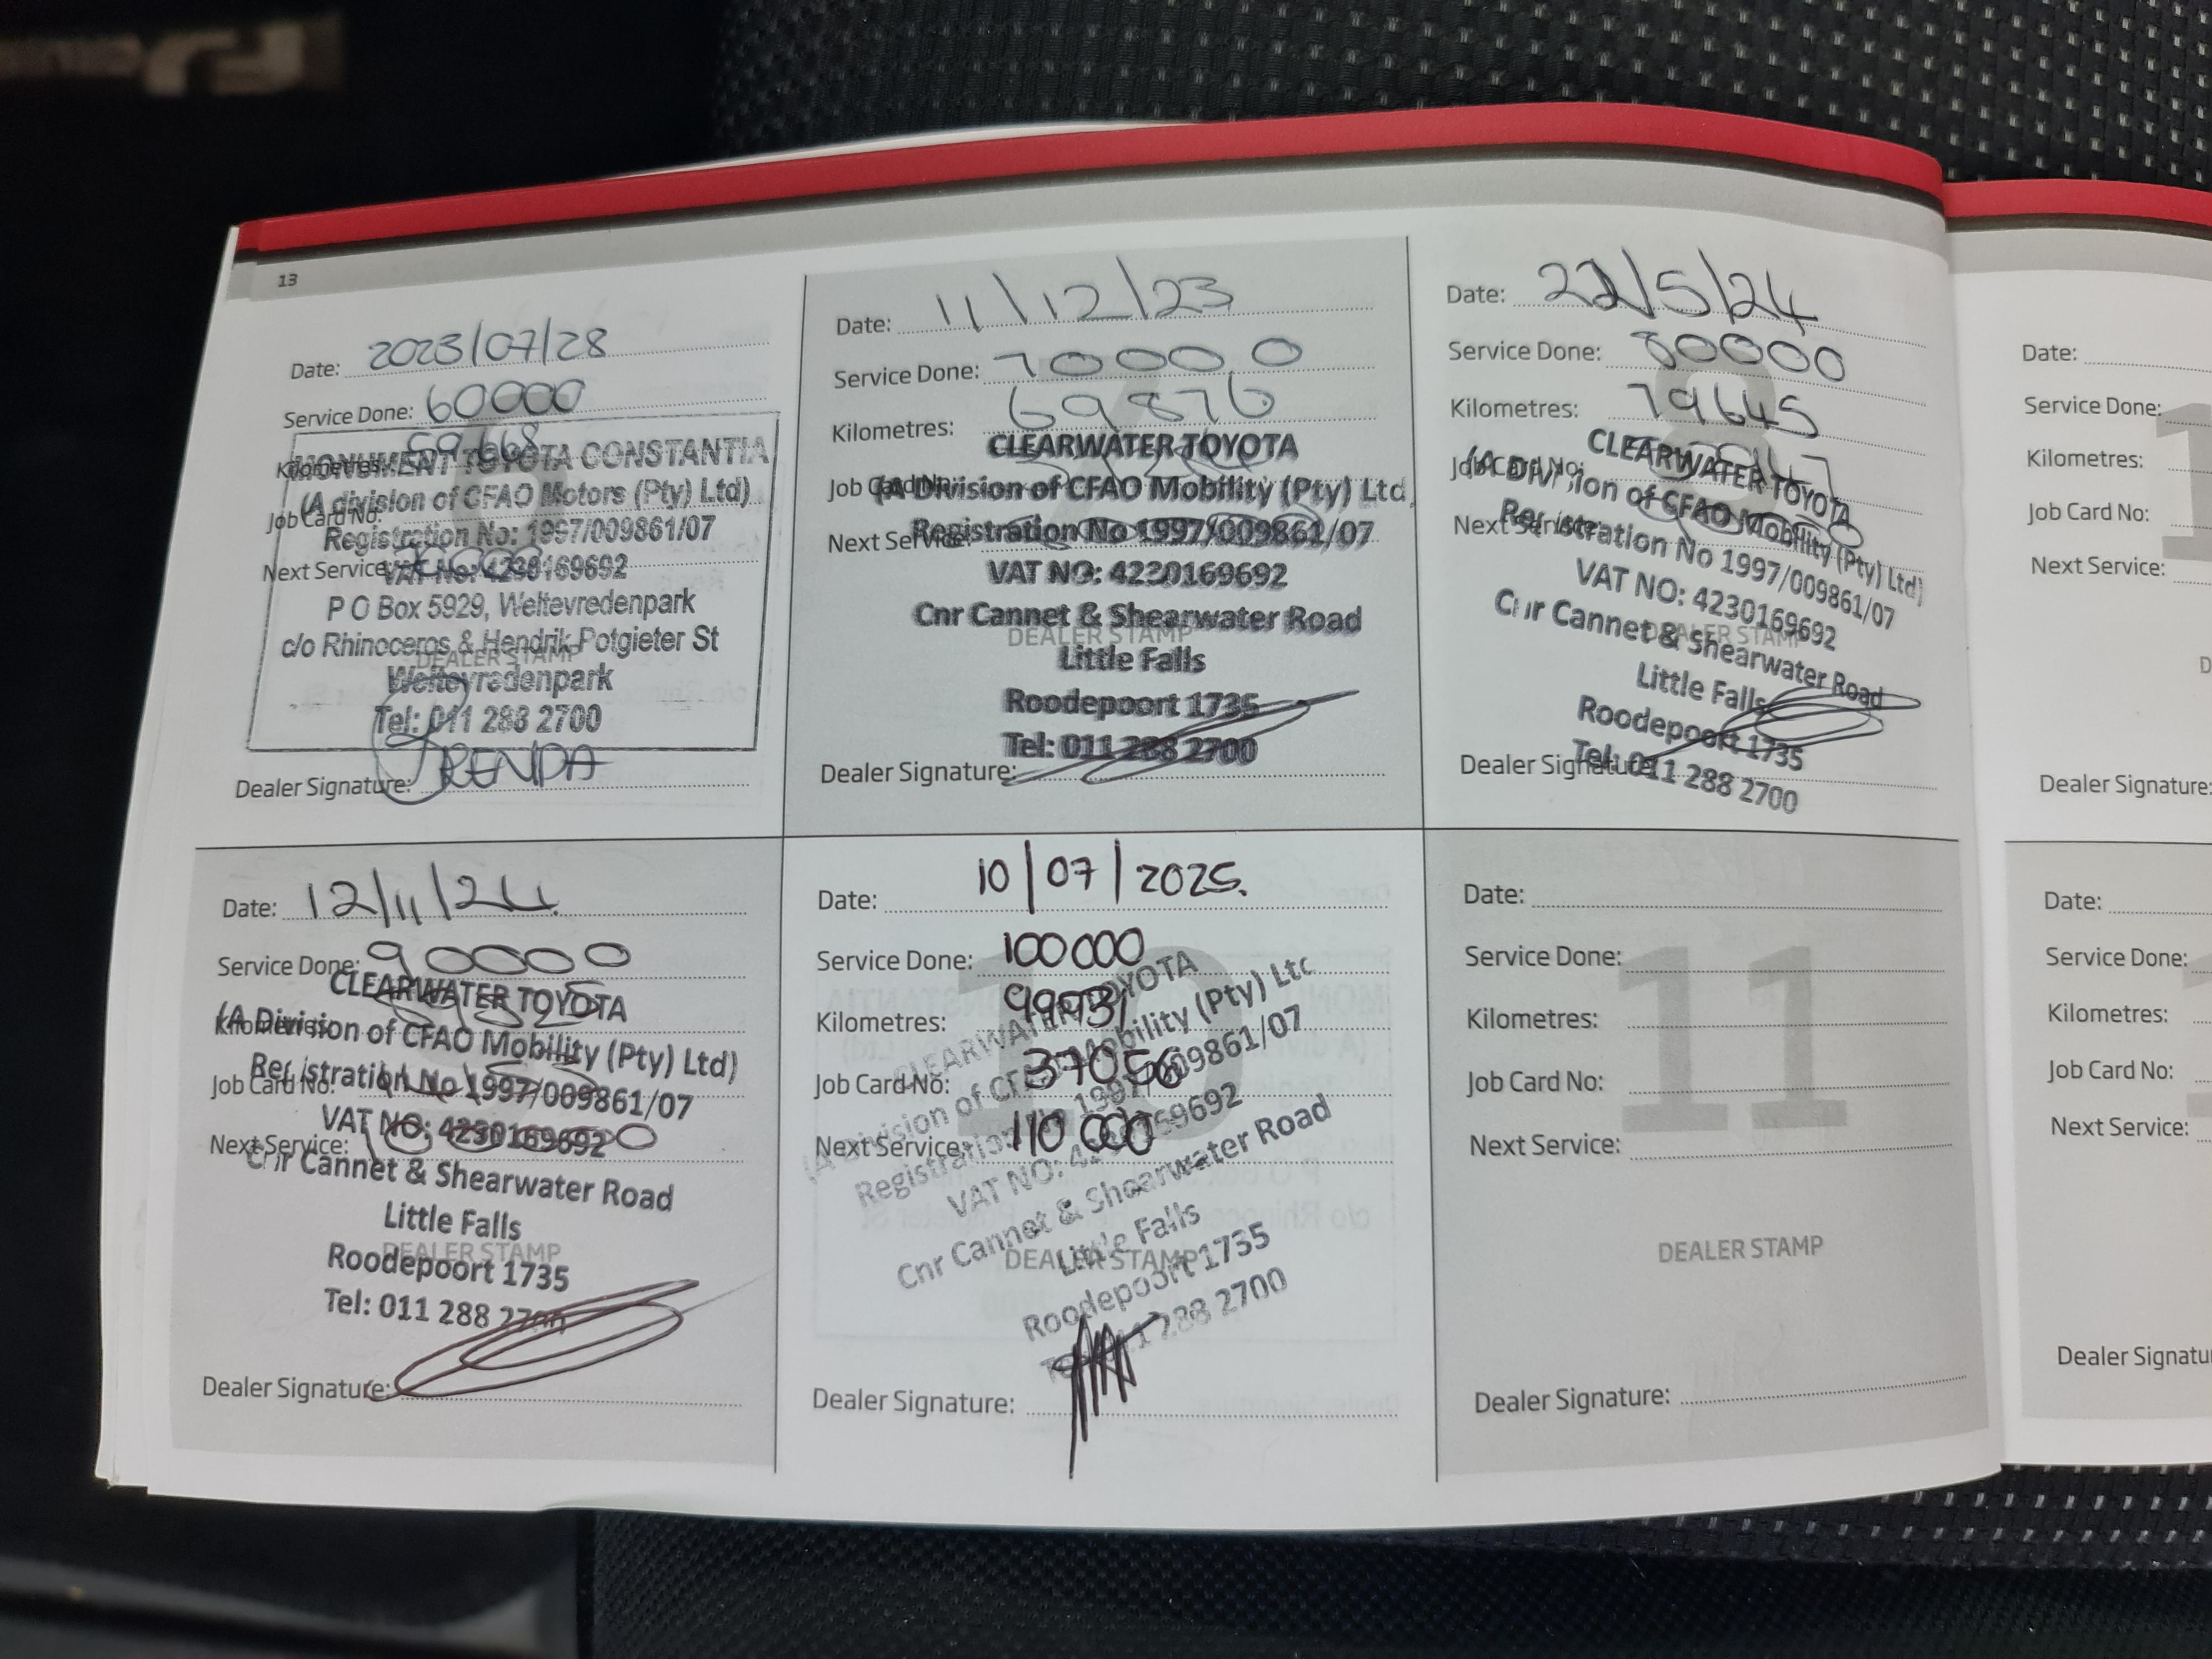 13
Date: 2023/07/28
Service Done: 60000
Kilometres: 59668
MONUMENT TOYOTA CONSTANTIA
(A division of CFAO Motors (Pty) Ltd)
Job Card No:
Registration No: 1997/009861/07
Next Service:
VAT No: 4230169692
P O Box 5929, Weltevredenpark
c/o Rhinoceros & Hendrik Potgieter St
DEALER STAMP
Weltevredenpark
Tel: 011 288 2700
Dealer Signature:
Date: 11/12/23
Service Done: 70000
Kilometres: 69876
CLEARWATER TOYOTA
Job Card No:
(A Division of CFAO Mobility (Pty) Ltd
Registration No 1997/009861/07
Next Service:
VAT NO: 4230169692
Cnr Cannet & Shearwater Road
DEALER STAMP
Little Falls
Roodepoort 1735
Tel: 011 288 2700
Dealer Signature:
Date: 22/5/24
Service Done: 80000
8
Kilometres: 79645
CLEARWATER TOYOTA
Job Card No:
(A Division of CFAO Mobility (Pty) Ltd)
Next Service:
Registration No 1997/009861/07
VAT NO: 4230169692
Cnr Cannet & Shearwater Road
DEALER STAMP
Little Falls
Roodepoort 1735
Tel: 011 288 2700
Dealer Signature:
Date:
Service Done:
Kilometres:
Job Card No:
Next Service:
Dealer Signature:
Date: 12/11/24
Service Done: 90000
CLEARWATER TOYOTA
Kilometres:
(A Division of CFAO Mobility (Pty) Ltd)
Job Card No:
Registration No 1997/009861/07
VAT NO: 4230169692
Next Service: 100000
Cnr Cannet & Shearwater Road
Little Falls
DEALER STAMP
Roodepoort 1735
Tel: 011 288 2700
Dealer Signature:
Date: 10/07/2025.
Service Done: 100000
10
Kilometres: 99931
Job Card No: 37056
Next Service: 110 000
CLEARWATER TOYOTA
(A Division of CFAO Mobility (Pty) Ltd
Registration No 1997/009861/07
VAT NO: 4230169692
Cnr Cannet & Shearwater Road
Little Falls
DEALER STAMP
Roodepoort 1735
Tel: 011 288 2700
Dealer Signature:
Date:
Service Done:
11
Kilometres:
Job Card No:
Next Service:
DEALER STAMP
Dealer Signature:
Date:
Service Done:
Kilometres:
Job Card No:
Next Service: